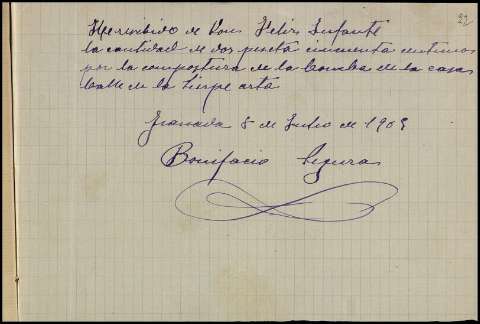 22
He recibido de Don Felix Infante
la cantidad de dos peseta cincuenta centimos
por la compostura de la bomba de la casa
Calle de la Sierpe arta
Granada 8 de Julio de 1909
Bonifacio Segura